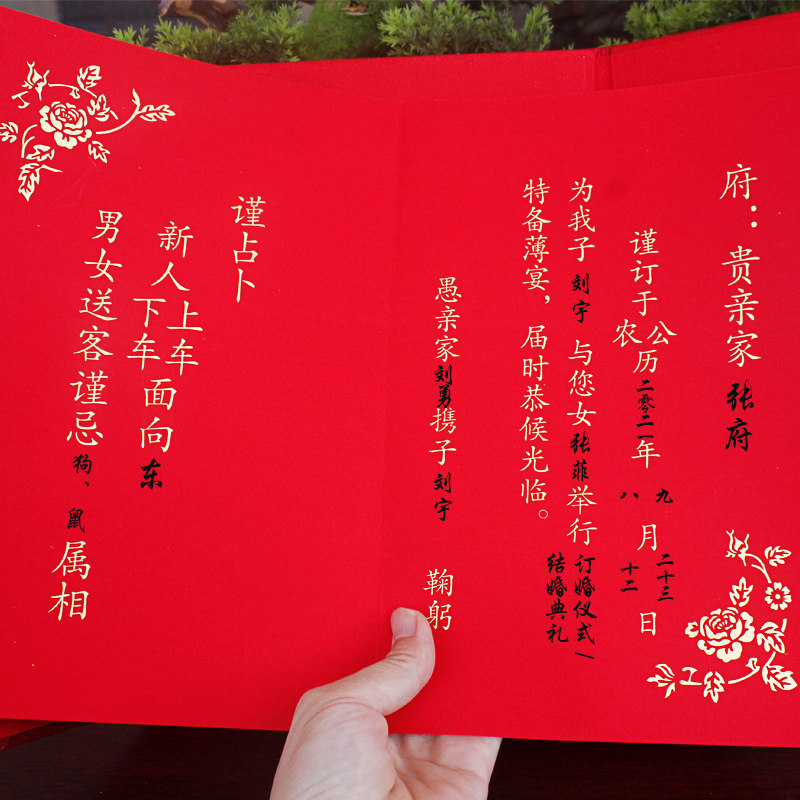 府：贵亲家 张府
谨订于公农历二零二一年 九 八 月 二十三 十二 日
为我子 刘宇 与您女 张菲 举行 订婚仪式/ 结婚典礼
特备薄宴，届时恭候光临。
愚亲家 刘勇 携子 刘宇 鞠躬
谨占卜
新人上车下车面向 东
男女送客谨忌 狗、鼠 属相